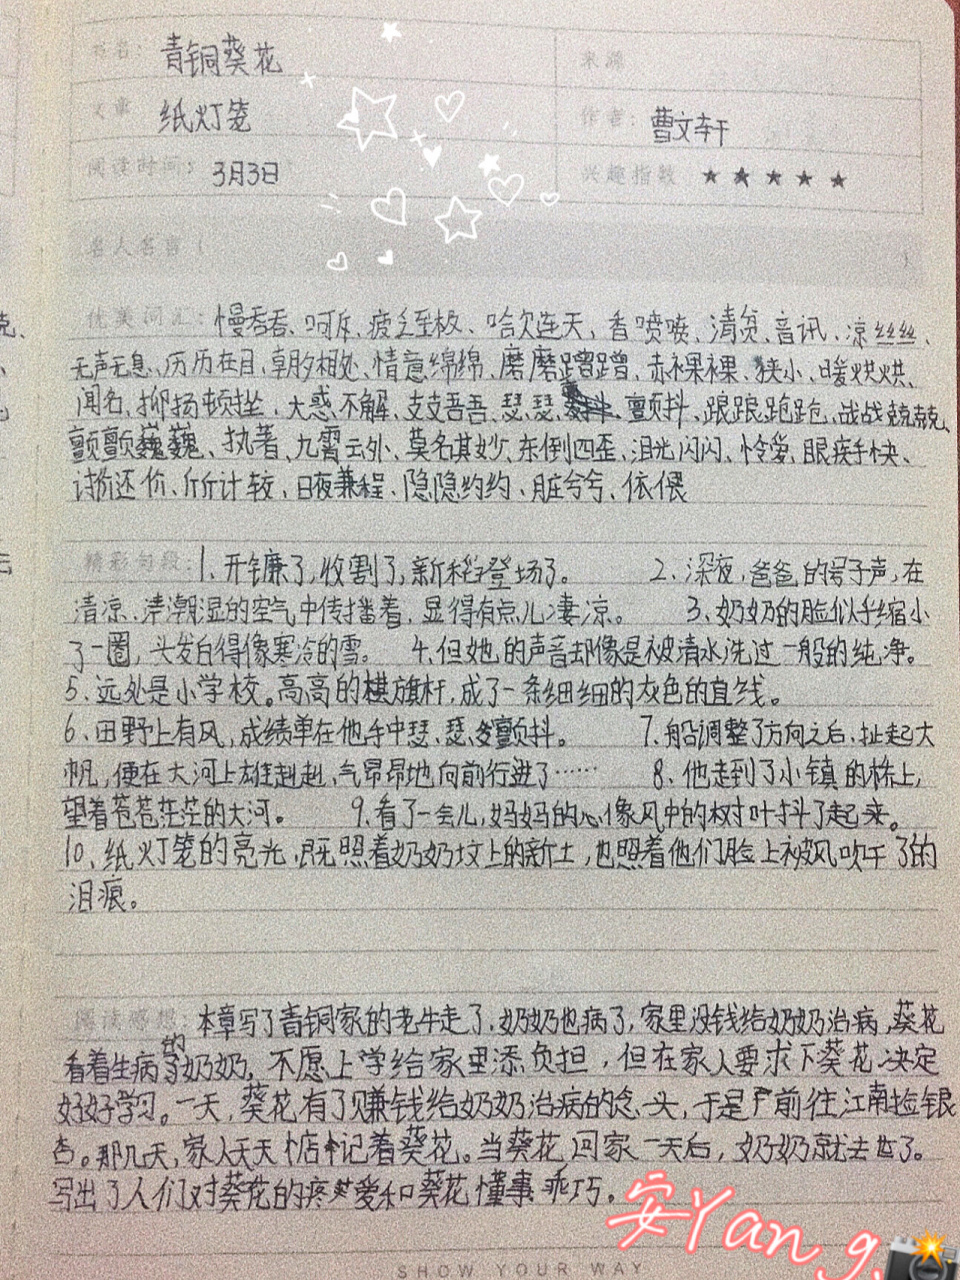 书名：青铜葵花
来源
文章 纸灯笼
作者：曹文轩
阅读时间：3月3日
兴趣指数 ★★★★★
名人名言（ ）
优美词汇：慢吞吞、呵斥、疲乏至极、哈欠连天、香喷喷、清贫、音讯、凉丝丝、
无声无息、历历在目、朝夕相处、情意绵绵、磨磨蹭蹭、赤裸裸、狭小、暖烘烘、
闻名、抑扬顿挫、大惑不解、支支吾吾、瑟瑟颤抖、踉踉跄跄、战战兢兢、
颤颤巍巍、执著、九霄云外、莫名其妙、东倒四歪、泪光闪闪、怜爱、眼疾手快、
讨价还价、斤斤计较、日夜兼程、隐隐约约、脏兮兮、依偎
精彩句段：1、开镰了，收割了，新稻登场了。 2、深夜，爸爸的号子声，在
清凉、潮湿的空气中传播着，显得有点儿凄凉。 3、奶奶的脸似乎缩小
了一圈，头发白得像寒冷的雪。 4、但她的声音却像是被清水洗过一般的纯净。
5、远处是小学校。高高的旗杆，成了一条细细的灰色的直线。
6、田野上有风，成绩单在他手中瑟、瑟颤抖。 7、船调整了方向之后，扯起大
帆，便在大河上雄赳赳、气昂昂地向前行进了…… 8、他走到了小镇的桥上，
望着苍苍茫茫的大河。 9、看了一会儿，妈妈的心像风中的树叶抖了起来。
10、纸灯笼的亮光，既照着奶奶坟上的新土，也照着他们脸上被风吹干了的
泪痕。
阅读感想：本章写了青铜家的老牛走了，奶奶也病了，家里没钱给奶奶治病，葵花
看着生病的奶奶，不愿上学给家里添负担，但在家人要求下葵花决定
好好学习。一天，葵花有了赚钱给奶奶治病的念头，于是前往江南捡银
杏。那几天，家人天天惦记着葵花。当葵花回家一天后，奶奶就去世了。
写出了人们对葵花的疼爱和葵花懂事乖巧。
安Yang
SHOW YOUR WAY